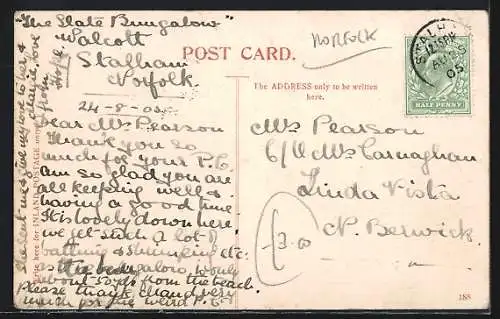 "The Slate Bungalow"
Walcott
Stalham
Norfolk.
24-8-05
Dear Mrs Pearson
Thank you so
much for your P.C.
am so glad you are
all keeping well &
having a good time
It is lovely down here
we get such a lot of
bathing & swimming etc:
as the bungalow, is only
about 50 yds from the beach.
Please thank Claud very
much for the weird P.C.
she sent me & give my love to her &
love
from
Hope.
POST CARD.
The ADDRESS only to be written
here.
NORFOLK
STALHAM
12.15PM
AU 25
05
HALF PENNY
Mrs Pearson
C/O Mrs Carnaghan
Linda Vista
N. Berwick
£3.00
188